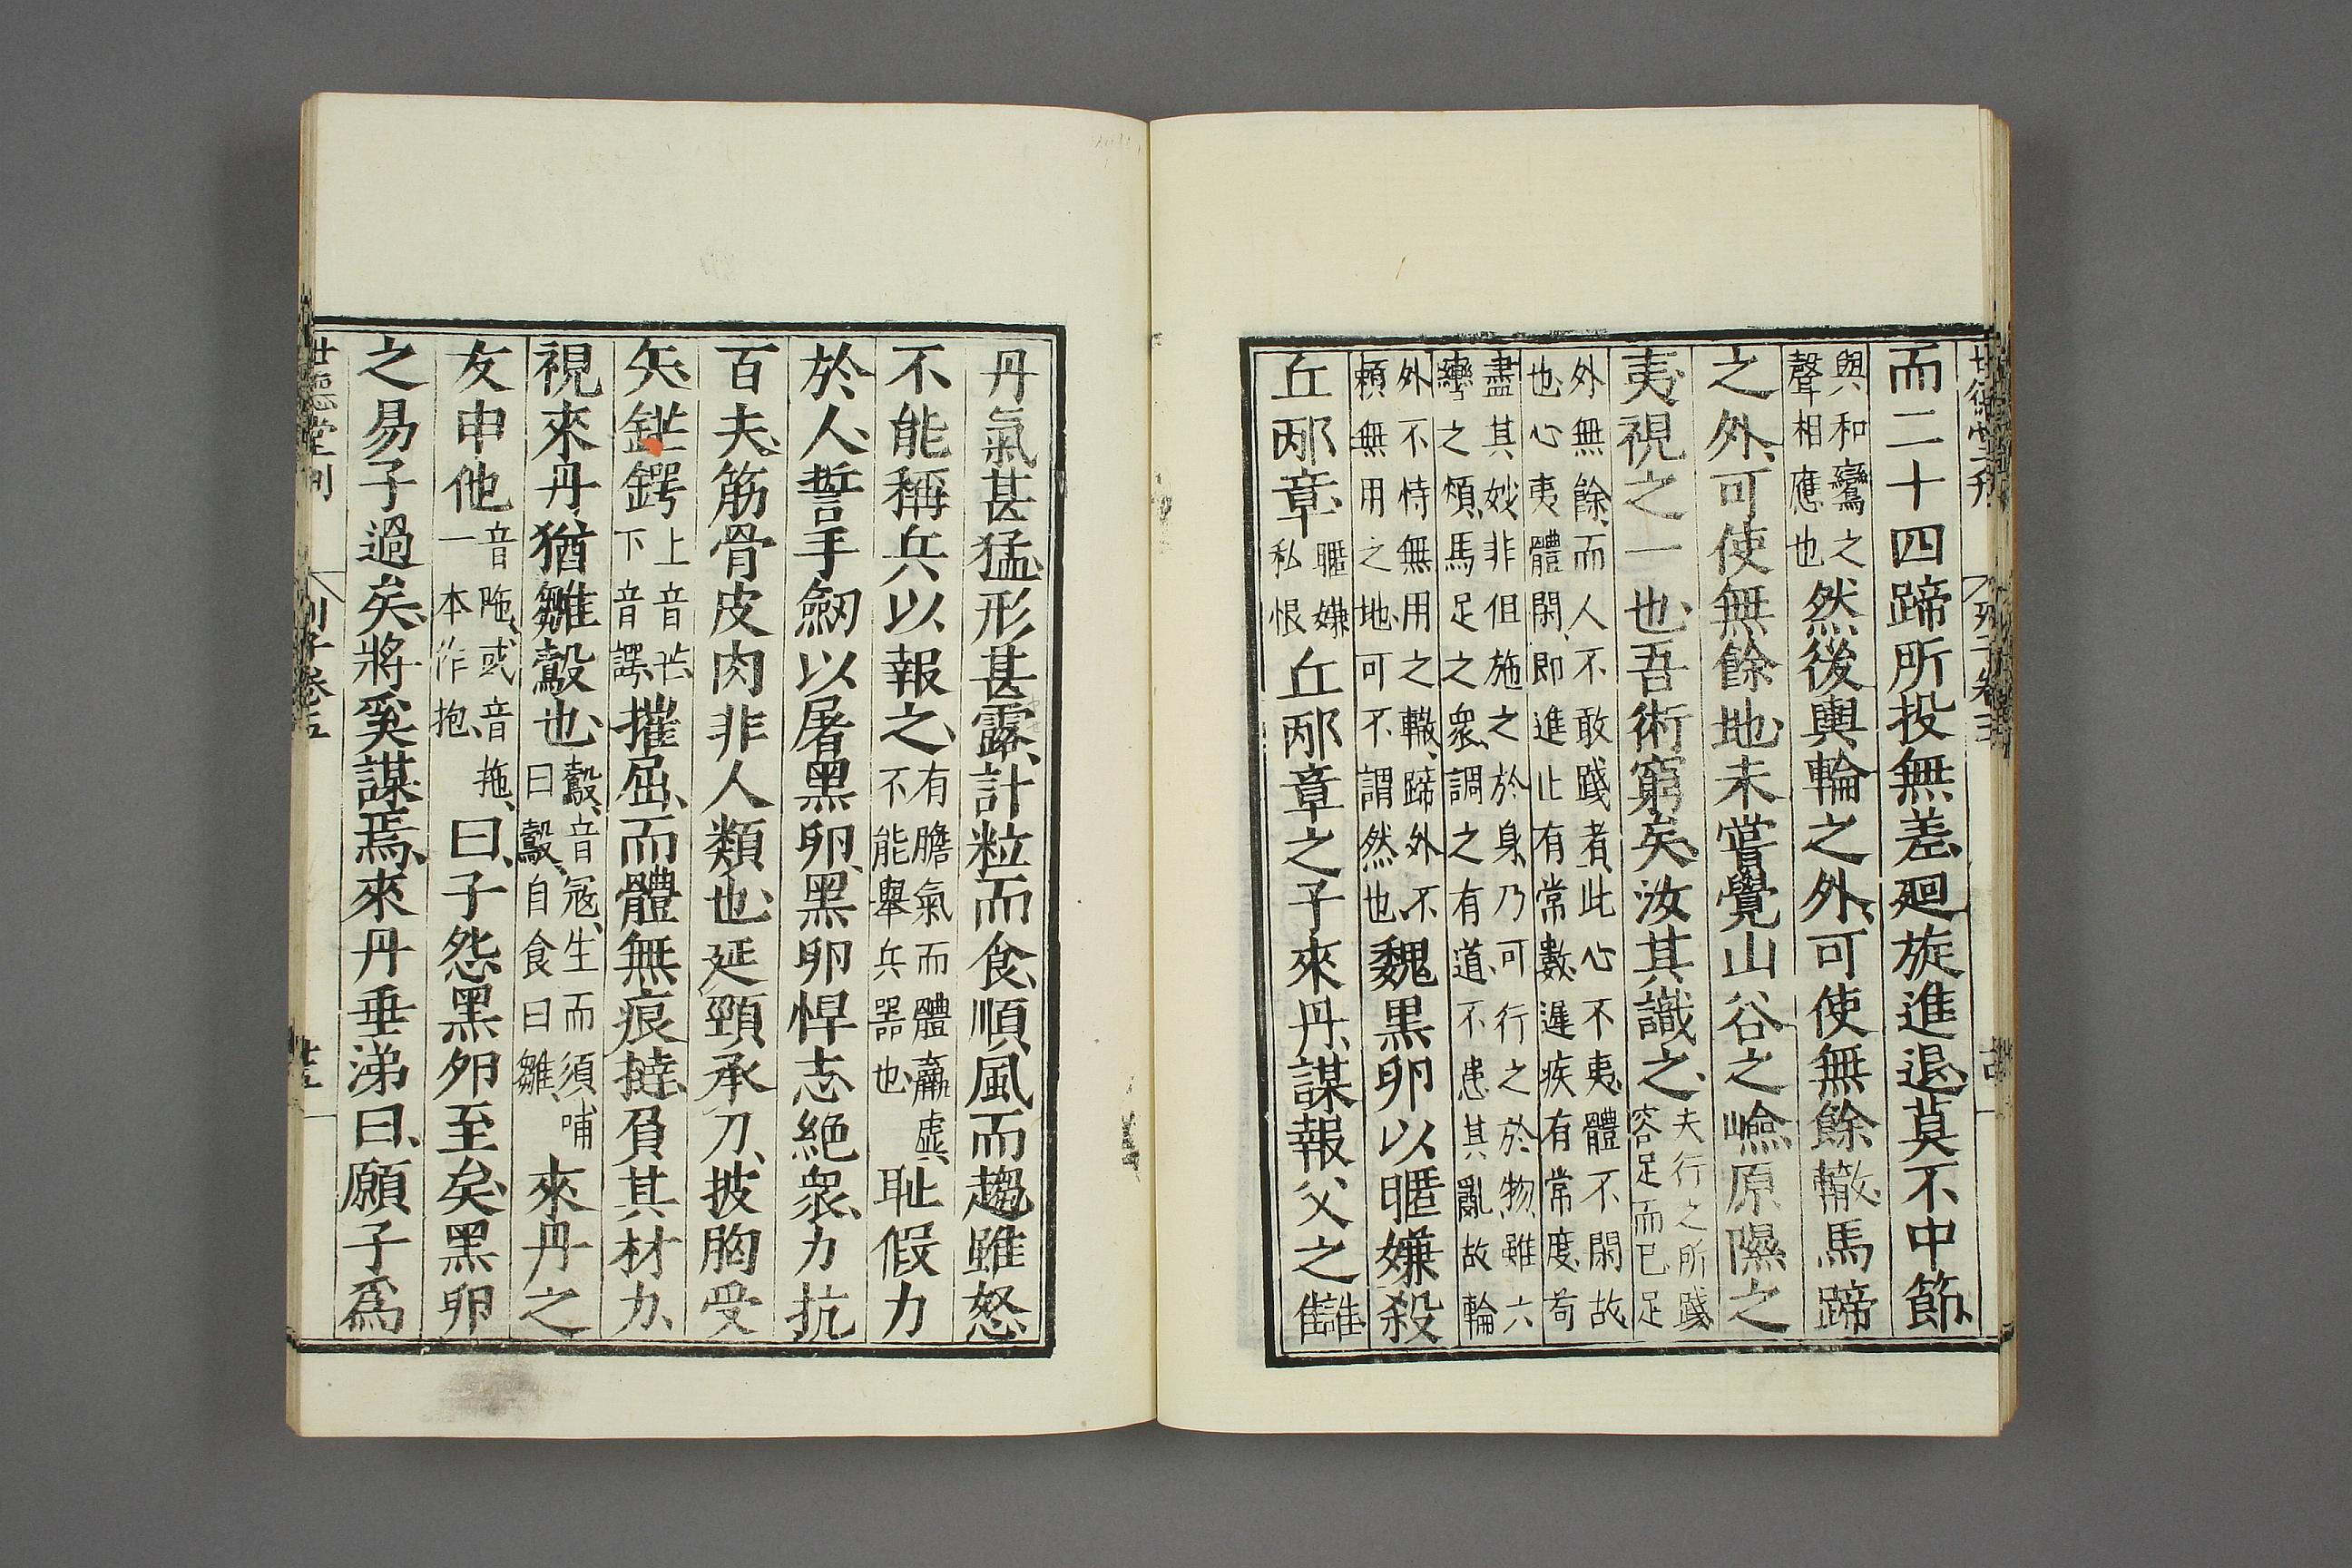 世德堂刊 列子卷五 廿四
而二十四蹄所投無差廻旋進退莫不中節
與和鸞之聲相應也然後輿輪之外可使無餘轍馬蹄
之外可使無餘地未嘗覺山谷之嶮原隰之
夷視之一也吾術窮矣汝其識之夫行之所踐容足而已足
外無餘而人不敢踐者此心不夷體不閑故也心夷體閑即進止有常數遲疾有常度苟
盡其妙非但施之於身乃可行之於物雖六轡之煩馬足之衆調之有道不患其亂故輪
外不恃無用之轍蹄外不賴無用之地可不謂然也魏黒卵以暱嫌殺
丘邴章暱嫌私恨丘邴章之子來丹謀報父之讎
丹氣甚猛形甚露計粒而食順風而趨雖怒
不能稱兵以報之有膽氣而體羸虛不能舉兵器也恥假力
於人誓手劒以屠黑卵黑卵悍志絶衆力抗
百夫筋骨皮肉非人類也延頸承刀披胸受
矢鋩鍔上音芒下音諤摧屈而體無痕撻負其材力
視來丹猶雛鷇也鷇音冦生而須哺曰鷇自食曰雛來丹之
友申他音陁或音拖一本作抱曰子怨黑卵至矣黑卵
之易子過矣將奚謀焉來丹垂涕曰願子爲
世德堂刊 列子卷五 廿五